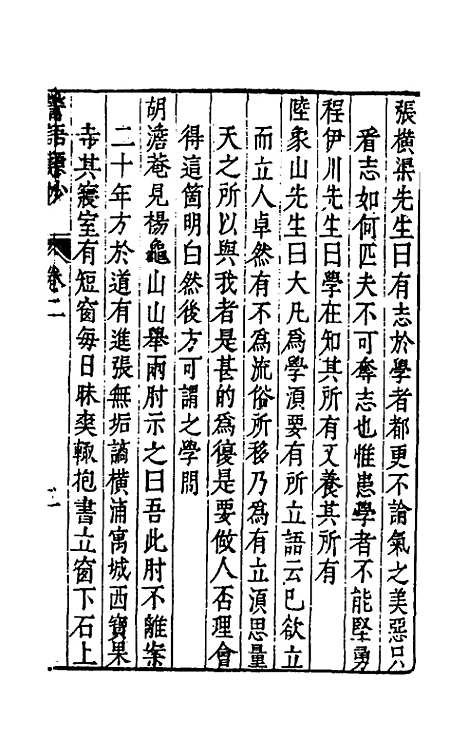 張橫渠先生曰有志於學者都更不論氣之美惡只
看志如何匹夫不可奪志也惟患學者不能堅勇
程伊川先生曰學在知其所有又養其所有
陸象山先生曰大凡爲學湏要有所立語云己欲立
而立人卓然有不爲流俗所移乃爲有立湏思量
天之所以與我者是甚的爲復是要做人否理會
得這箇明白然後方可謂之學問
胡澹菴見楊龜山山舉兩肘示之曰吾此肘不離案
二十年方於道有進張無垢謫橫浦寓城西寶果
寺其寢室有短窗每日昧奭輙抱書立窗下石上
語 卷二
二